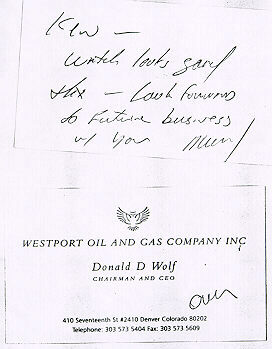 Ken —
watch looks good
thx — Look forward
to Future business
w/ you
WESTPORT OIL AND GAS COMPANY INC
Donald D Wolf
CHAIRMAN AND CEO
over
410 Seventeenth St #2410 Denver Colorado 80202
Telephone: 303 573 5404 Fax: 303 573 5609